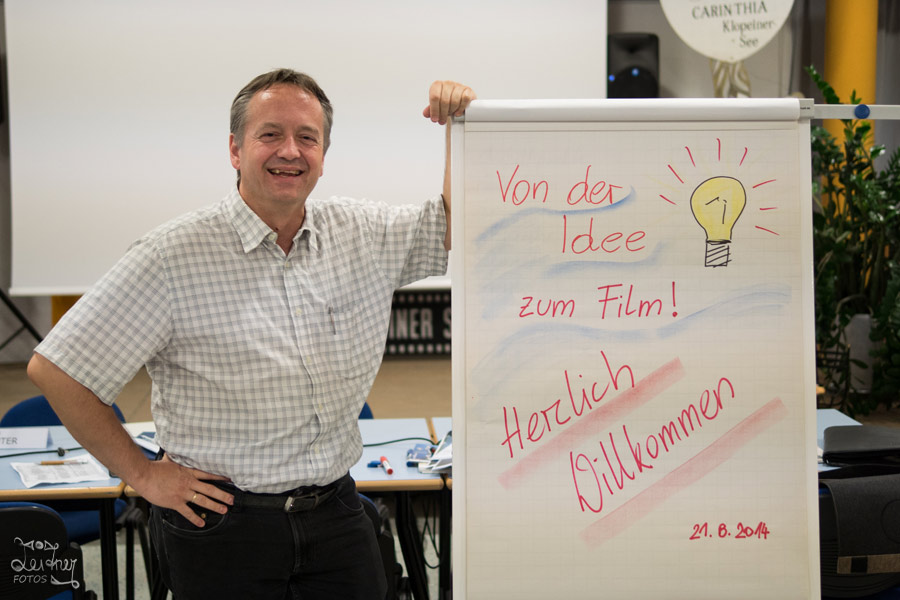 CARINTHIA
Klopeiner-
See
Von der
Idee
zum Film!
Herzlich
Willkommen
21.8.2014
INER S
TER
Leitner
FOTOS